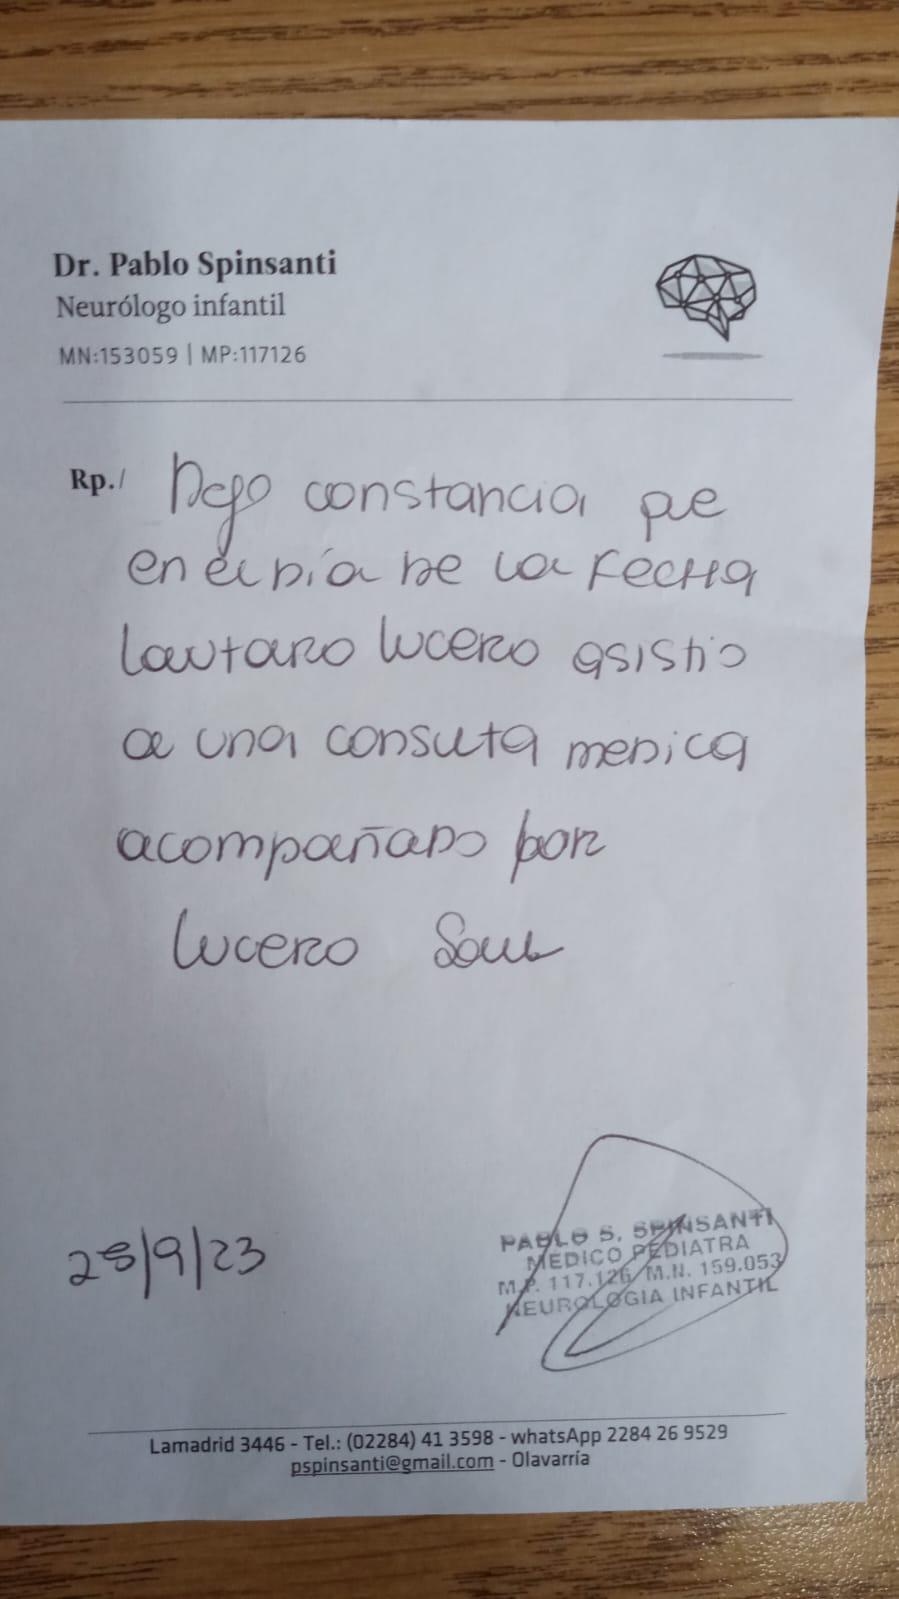 Dr. Pablo Spinsanti
Neurólogo infantil
MN:153059 | MP:117126
Rp./ Dejo constancia que
en el día de la fecha
Lautaro Lucero asistio
a una consulta medica
acompañado por
Lucero
28/9/23
PABLO S. SPINSANTI
MEDICO PEDIATRA
M.P. 117.126 M.N. 159.053
NEUROLOGIA INFANTIL
Lamadrid 3446 - Tel.: (02284) 41 3598 - whatsApp 2284 26 9529
pspinsanti@gmail.com - Olavarría